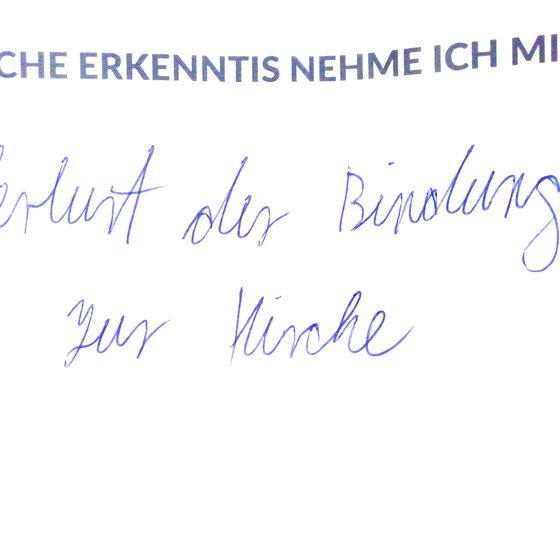 CHE ERKENNTIS NEHME ICH MI
erlust der Bindung
zur Kirche